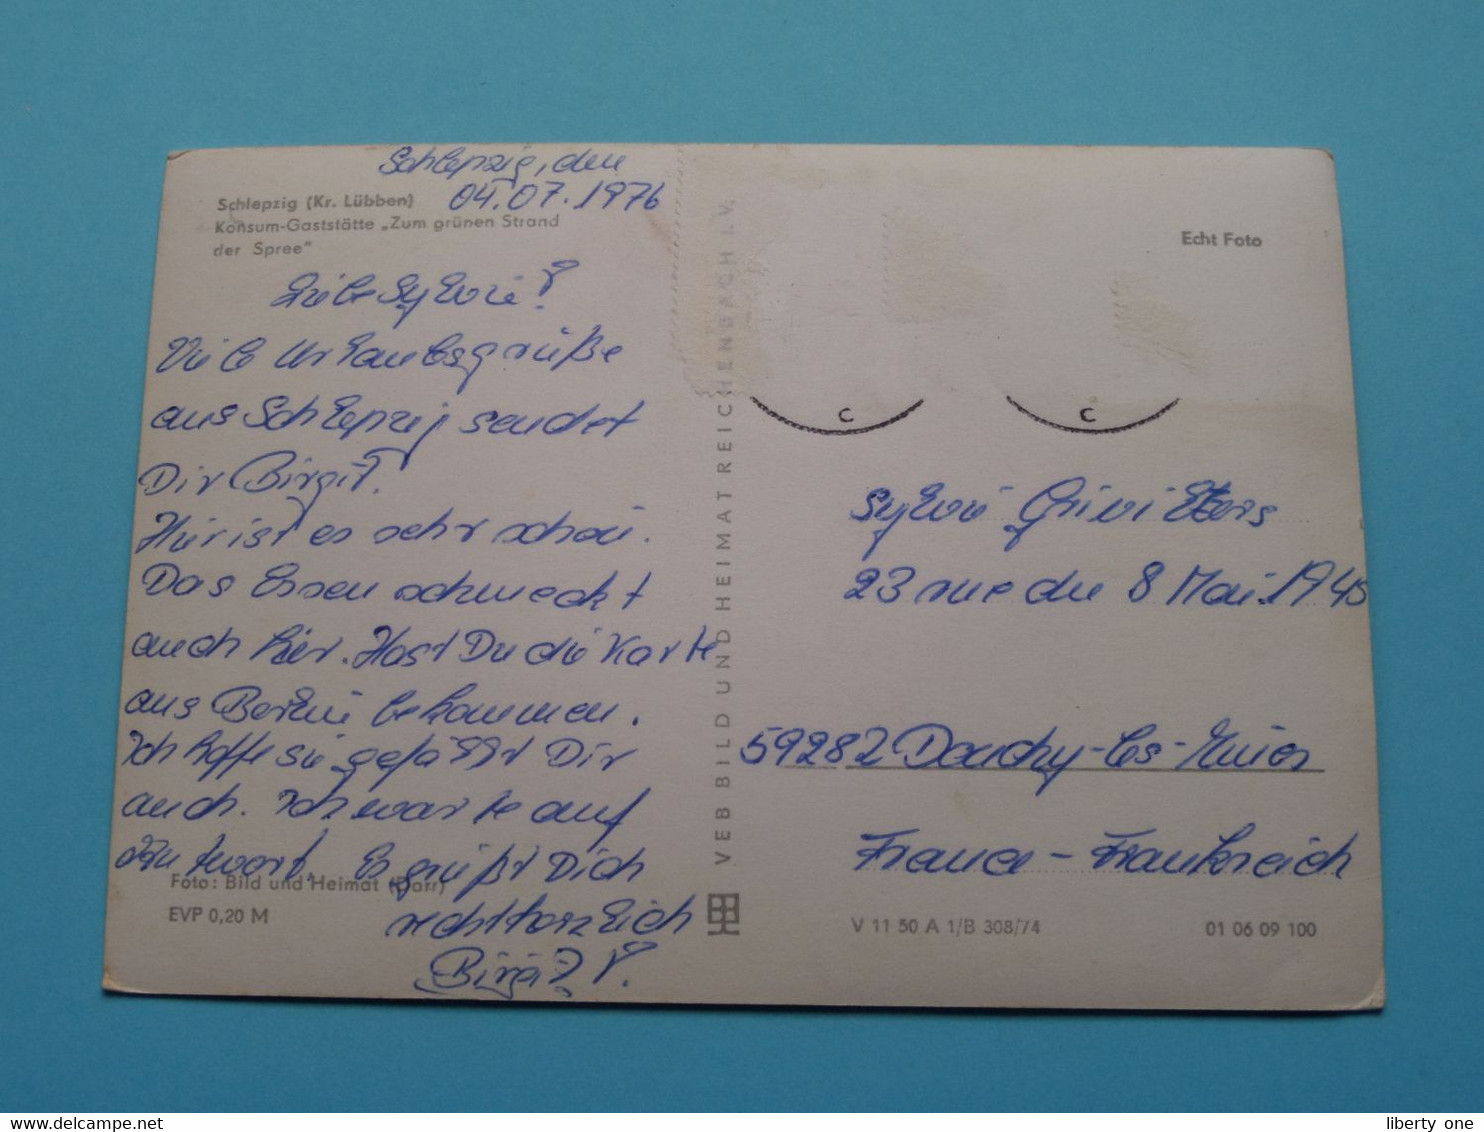 Schlepzig, den
04.07.1976
Schlepzig (Kr. Lübben)
Konsum-Gaststätte „Zum grünen Strand
der Spree"
Liebe Sylvie!
Viele Urlaubsgrüße
aus Schlepzig sendet
Dir Birgit.
Hier ist es sehr schön.
Das Essen schmeckt
auch hier. Hast Du die Karte
aus Berlin bekommen.
Ich hoffe sie gefällt Dir
auch. Ich warte auf
Antwort. Es grüßt Dich
recht herzlich
Birgit V.
Foto: Bild und Heimat (Darr)
EVP 0,20 M
VEB BILD UND HEIMAT REICHENBACH I. V.
Echt Foto
C
C
Sylvie
23 rue du 8 Mai 1945
59282 Douchy-les-Mines
France - Frankreich
V 11 50 A 1/B 308/74
01 06 09 100
liberty one